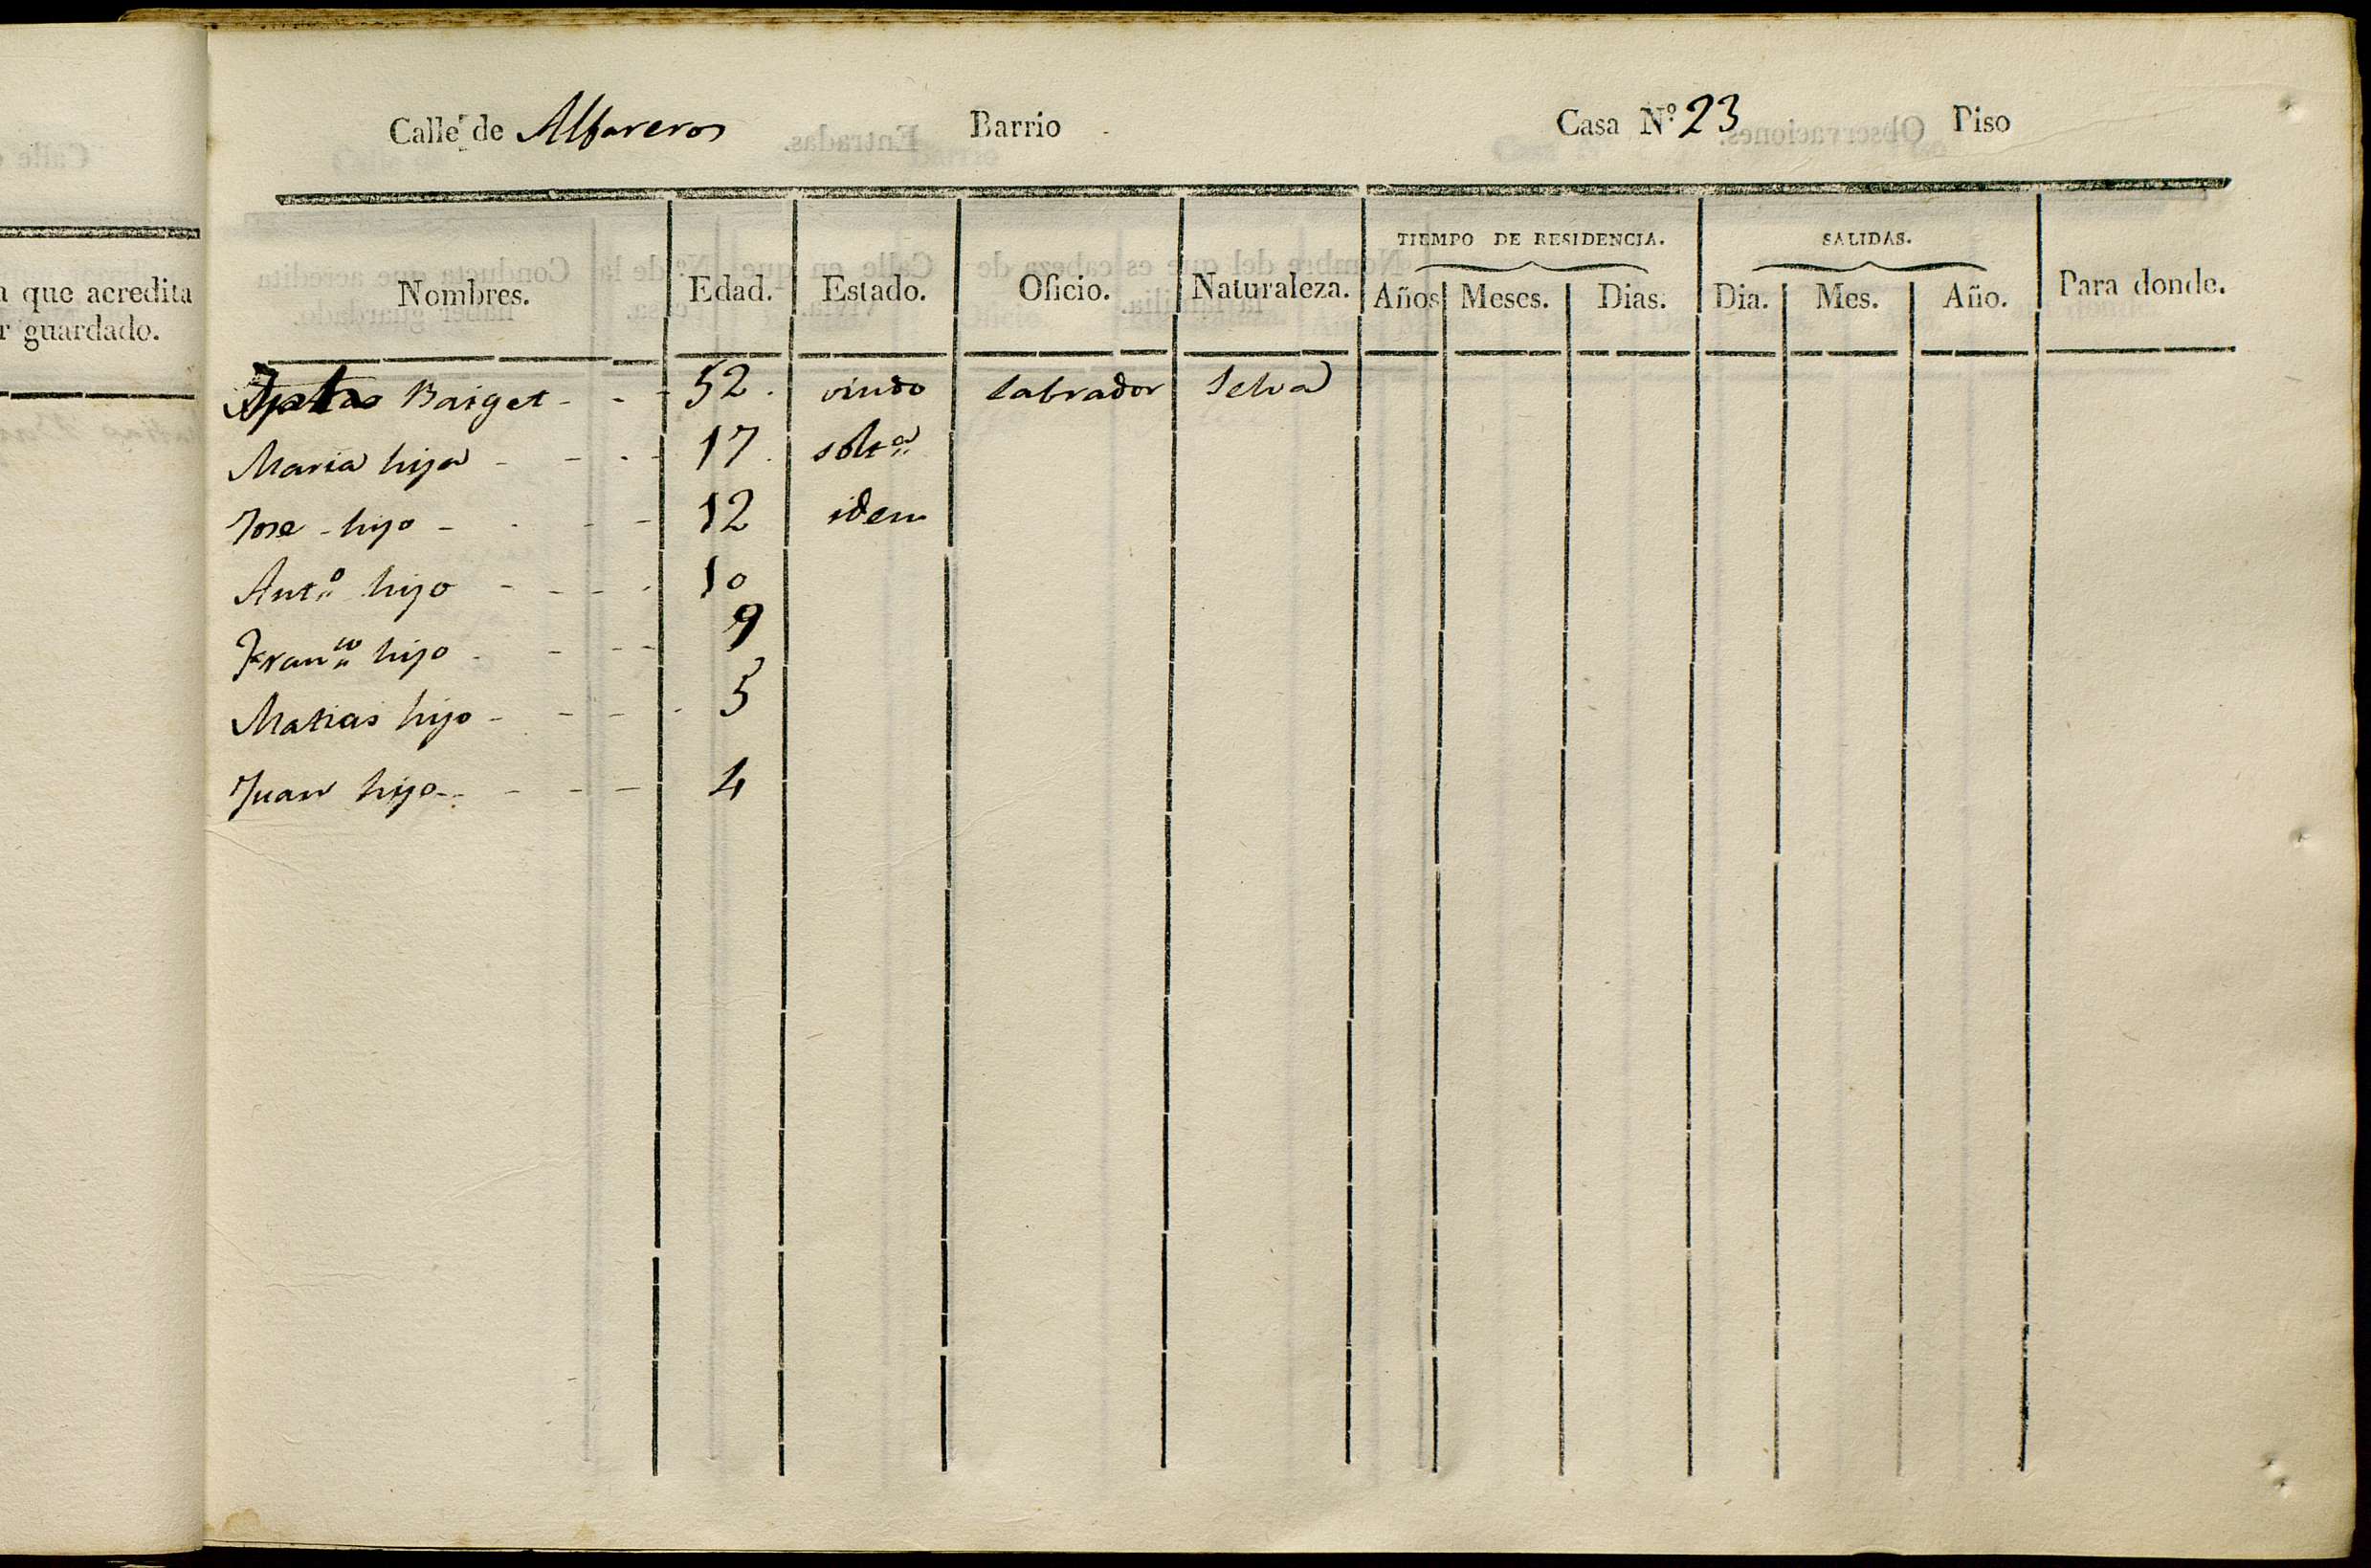 Calle de Alfareros Barrio Casa Nº 23 Piso
TIEMPO DE RESIDENCIA. SALIDAS.
Nombres. Edad. Estado. Oficio. Naturaleza. Años Meses. Dias. Dia. Mes. Año. Para donde.
Baiget 52. viudo labrador Selva
Maria hija 17. solt.ª
Jose hijo 12 idem
Ant.º hijo 10
Fran.co hijo 9
Matias hijo 5
Juan hijo 4
que acredita
guardado.